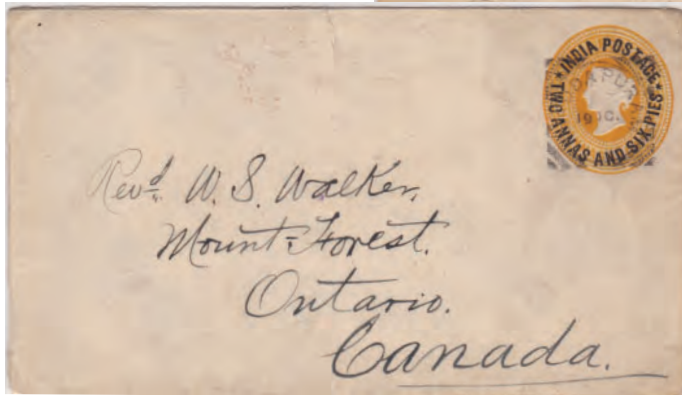 INDIA POSTAGE
TWO ANNAS AND SIX PIES
19 OC
Revd. W. S. Walker,
Mount-Forest.
Ontario.
Canada.